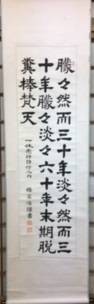 朦々然而三十年淡々然而三
十年朦々淡々六十年末期脱
糞棒梵天